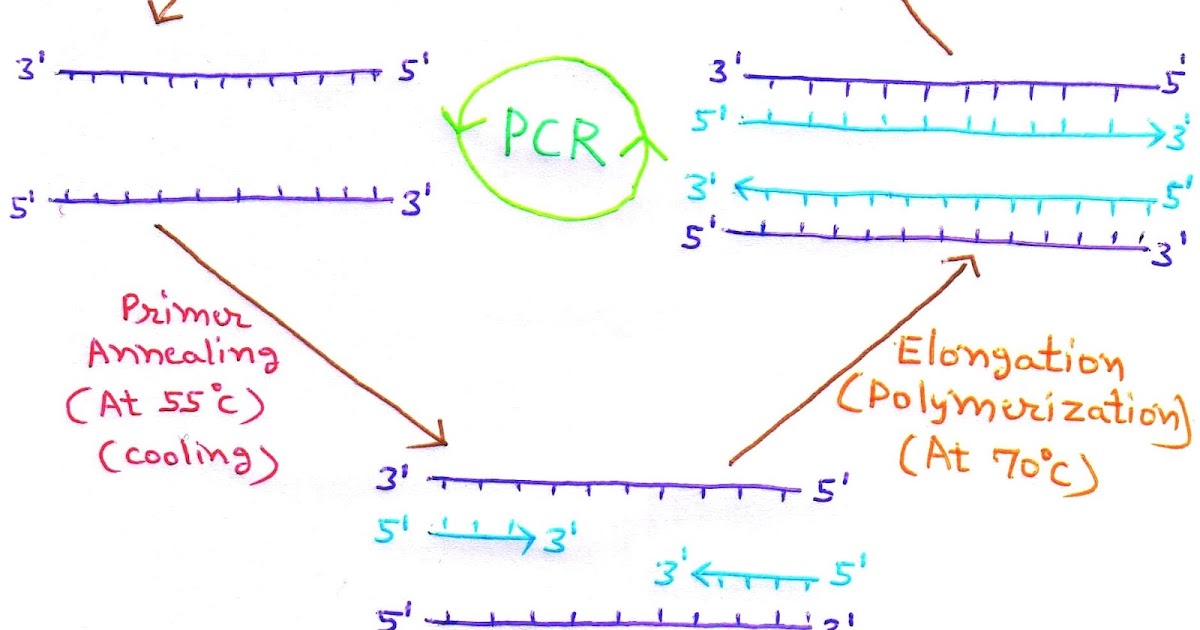 3' 5'
5' 3'
PCR
3' 5'
5' 3'
3' 5'
5' 3'
Primer
Annealing
(At 55°c)
(cooling)
Elongation
(Polymerization)
(At 70°c)
3' 5'
5' 3'
3' 5'
5' 3'